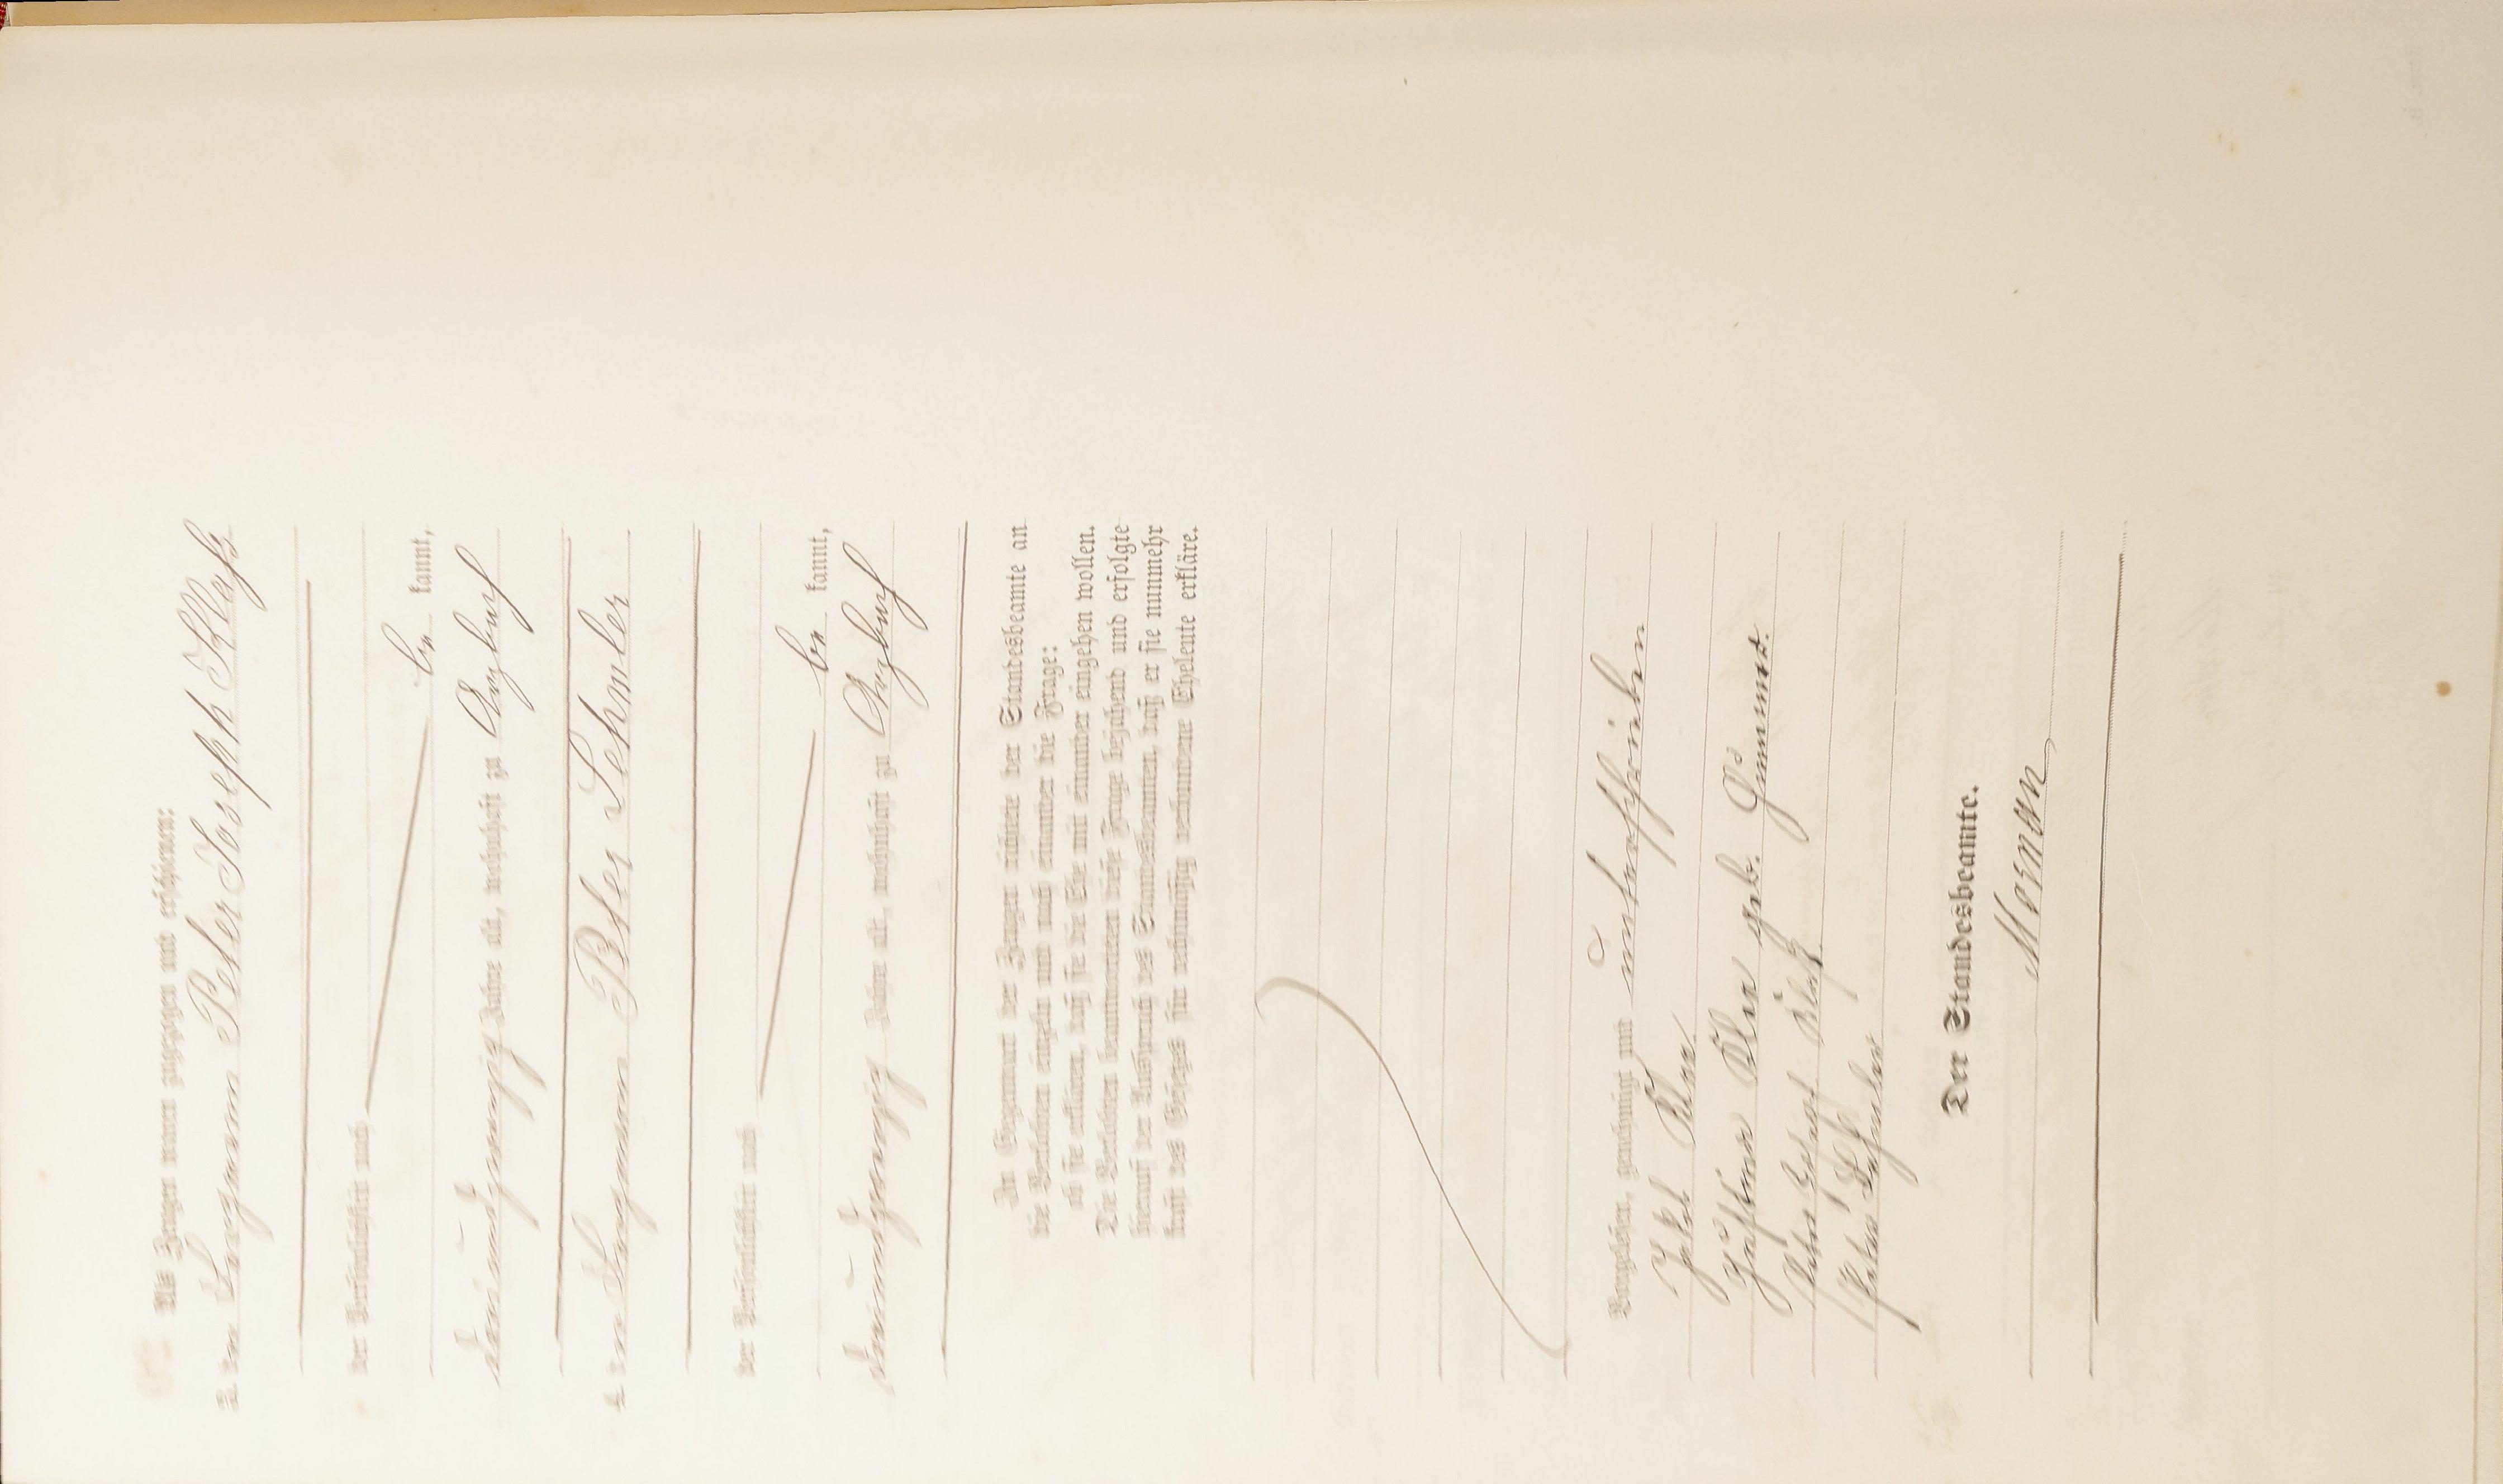 Als Zeugen waren zugegen und erschienen:
3. der Bergmann Peter Joseph Klaß
der Persönlichkeit nach
be kannt,
dreiundzwanzig Jahre alt, wohnhaft zu Anzburg
4. der Bergmann Peter Lehmler
der Persönlichkeit nach
be kannt,
dreiundzwanzig Jahre alt, wohnhaft zu Anzburg
In Gegenwart der Zeugen richtete der Standesbeamte an
die Verlobten einzeln und nach einander die Frage:
ob sie erklären, daß sie die Ehe mit einander eingehen wollen.
Die Verlobten beantworteten diese Frage bejahend und erfolgte
hierauf der Ausspruch des Standesbeamten, daß er sie nunmehr
kraft des Gesetzes für rechtmäßig verbundene Eheleute erkläre.
Vorgelesen, genehmigt und unterschrieben
geb.
Peter Klaß
Peter Lehmler
Der Standesbeamte.